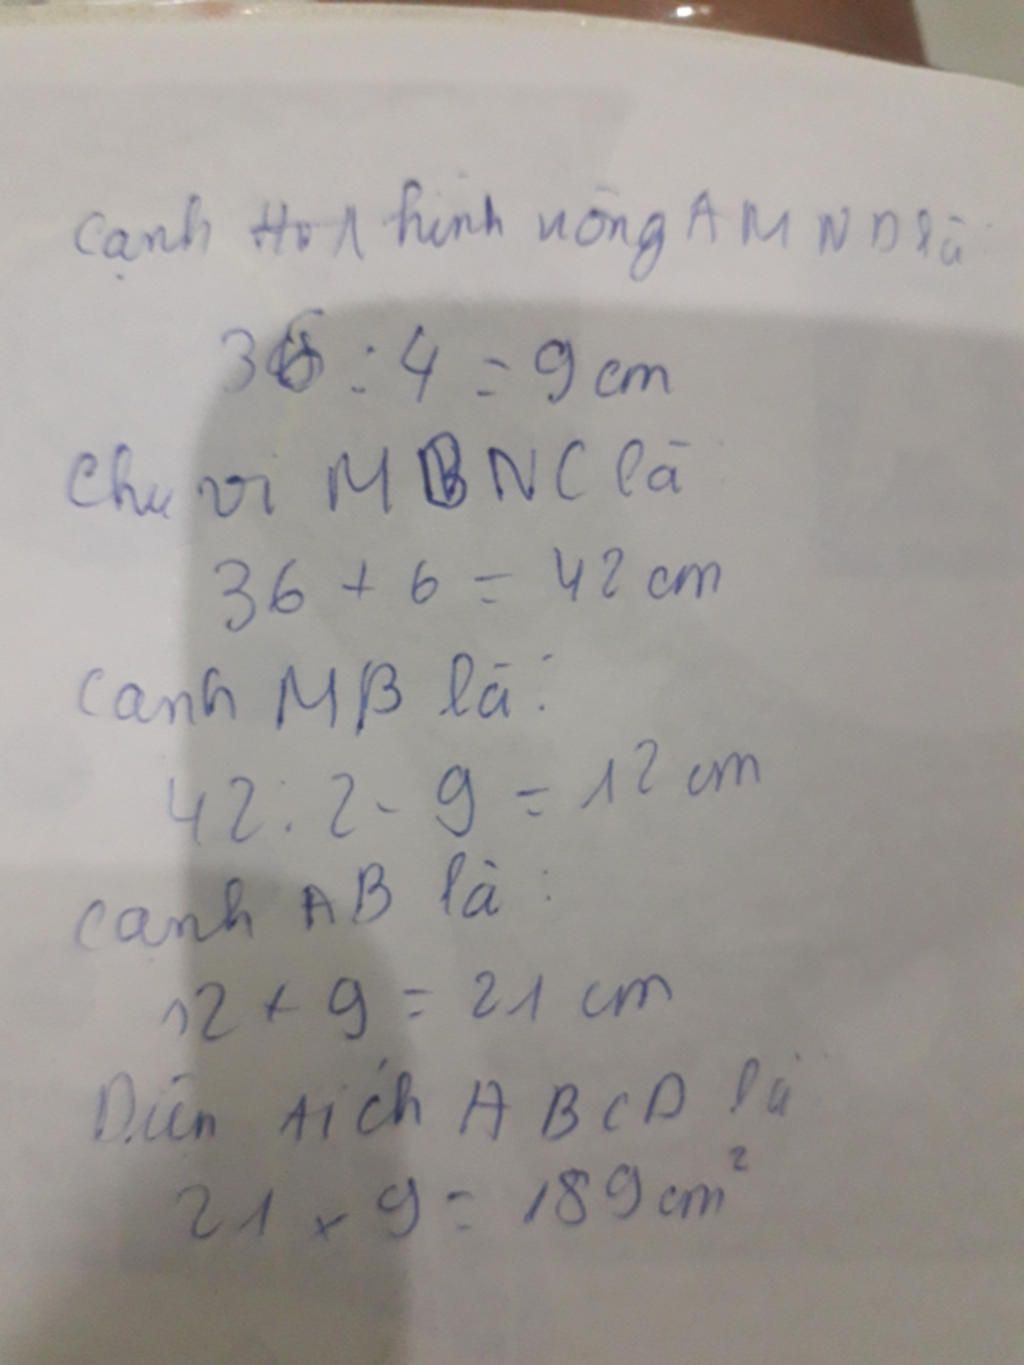 Cạnh hình vuông AMND là:
36 : 4 = 9 cm
Chu vi MBNC là:
36 + 6 = 42 cm
Cạnh MB là:
42 : 2 - 9 = 12 cm
Cạnh AB là:
12 + 9 = 21 cm
Diện tích ABCD là
21 x 9 = 189 cm²